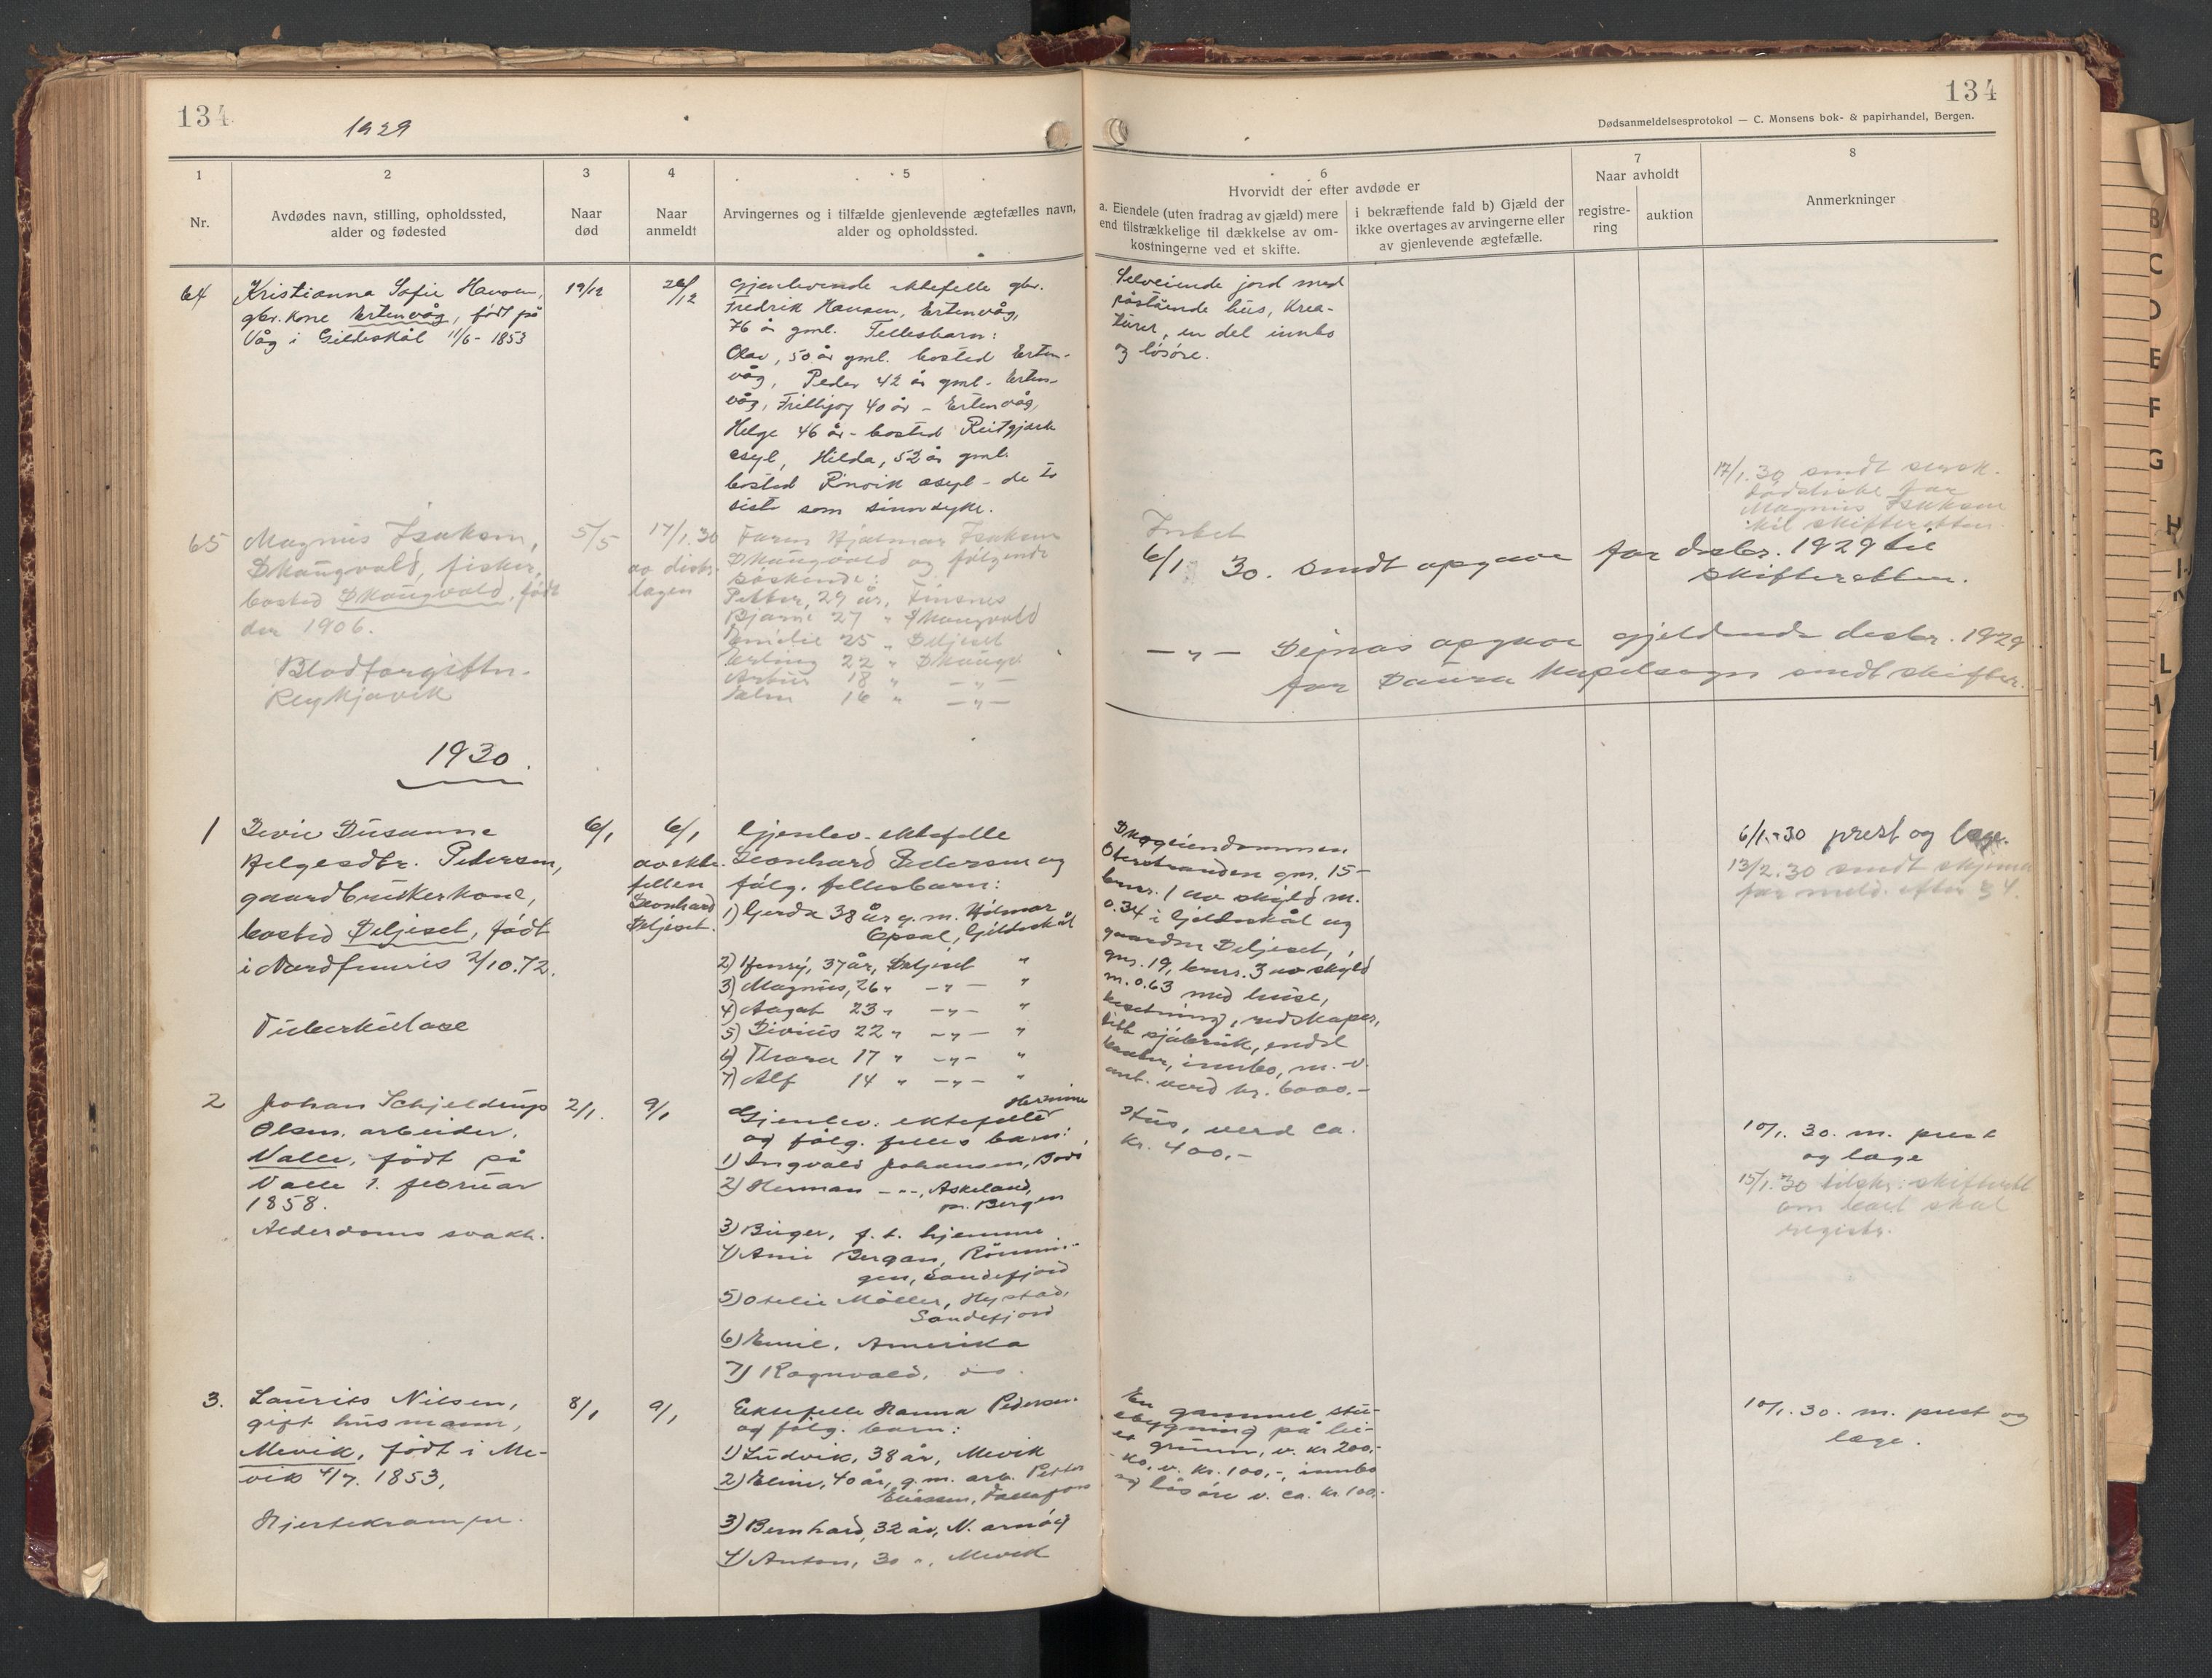 134
1929
1
2
3
4
5
Nr.
Avdødes navn, stilling, opholdssted,
alder og fødested
Naar
død
Naar
anmeldt
Arvingernes og i tilfælde gjenlevende ægtefælles navn,
alder og opholdssted.
64
Kristianna Sofie Hansen,
gbr. kone Ertenvåg, født på
Våg i Gildeskål 11/6-1853
19/12
26/12
Gjenlevende ektefelle gbr.
Fredrik Hansen, Ertenvåg,
76 år gml. Fellesbarn:
Olav, 50 år gml. bosted Erten-
våg, Peder 42 år gml. Erten-
våg, Frithjof 40 år - Ertenvåg,
Helge 46 år - bosted Reitgjærde
asyl, Hilda, 52 år gml.
bosted Rnvik asyl - de to
siste som sinnsyke.
65
Magnus Isaksen,
Skaugvold, fisker,
bosted Skaugvold, født
der 1906.
Blodforgiftn.
Reykjavik
5/5
17/1.30
av distr.
lægen
Faren Hjalmar Isaksen
Skaugvold og følgende
søskende:
Petter, 29 år, Finsnes
Bjarne 27 " Skaugvold
Emilie 25 " Seljeset
Erling 22 " Skaugv
Artur 18 " — " —
16 " — " —
1930.
1
Sevie Susanne
Helgesdtr. Pedersen,
gaardbrukerkone,
bosted Seljeset, født
i Nordfuuris 2/10.72.
Tuberkulose
6/1
6/1
av ekte-
fellen
Leonhard
Seljeset.
Gjenlev. ektefelle
Leonhard Pedersen og
følg. fellesbarn:
1) Gerda 38 år g.m. Hilmar
Opsal, Gildeskål
2) Henry, 37 år, Seljeset "
3) Magnus, 26 " — " — "
4) Aagot 23 " — " — "
5) Sivius 22 " — " — "
6) Thora 17 " — " — "
7) Alf 14 " — " — "
2
Johan Schjeldrup
Olsen, arbeider,
Valle, født på
Valle 1. februar
1858.
Alderdoms svakh.
2/1.
9/1
Hermine
Gjenlev. ektefelle
og følg. felles barn:
1) Ingvald Johansen, Bodø
2) Herman — " —, Askeland,
pr. Bergen
3) Birger, f. t. hjemme
4) Anni Bergan, Rönnin-
gen, Sandefjord
5) Otelie Møller, Hystad,
Sandefjord
6) Emil, Amerika
7) Ragnvald, do.
3.
Laurits Nilsen,
gift husmann,
Mevik, født i Me-
vik 4/7. 1853,
Hjertekramper.
8/1
9/1
Ektefelle Hanna Pedersen
og følg. barn:
1) Ludvik, 38 år, Mevik
2) Eline, 40 år, g.m. arb. Petter
Eliassen,
3) Bernhard, 32 år, N. arnøy
4) Anton, 30 ", Mevik
134
Dødsanmeldelsesprotokol — C. Monsens bok- & papirhandel, Bergen.
6
Hvorvidt der efter avdøde er
a. Eiendele (uten fradrag av gjæld) mere
end tilstrækkelige til dækkelse av om-
kostningerne ved et skifte.
i bekræftende fald b) Gjæld der
ikke overtages av arvingerne eller
av gjenlevende ægtefælle.
7
Naar avholdt
registre-
ring
auktion
8
Anmerkninger
Selveiende jord med
påstående hus, krea-
turer, en del innbo
og løsøre.
17/1.30 sendt
dødsliste for
Magnus Isaksen
til skifteretten.
Intet
6/1 30. sendt opgave for desbr. 1929 til
skifteretten.
— " — Sejnæs opgave gjeldende desbr. 1929
for Saura kapelsogn sendt skifter.
Skogeiendommen
Oterstranden gnr. 15-
bnr. 1 av skyld m.
0.34 i Gildeskål og
gaarden Seljeset,
gnr. 19, bnr. 3 av skyld
m. 0.63 med huse,
besetning, redskaper,
litt sjøbruk, endel
innbo, m. v.
ant. verd kr. 6000.-
6/1.-30 prest og læge.
13/2.30 sendt skjema
for meld. efter § 4.
Hus, verd ca.
kr. 400,-
10/1. 30. m. prest
og læge
15/1.30 tilskr. skifterett
om boet skal
registr.
En gammel stu-
ebygning på lei-
et grunn, v. kr 200,-
ko, v. kr. 100,-, innbo
og løsøre v. ca. kr. 100,-
10/1. 30. m. prest og
læge.
B
C
D
E
F
G
H
I
K
L